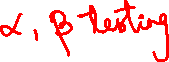 α, β testing